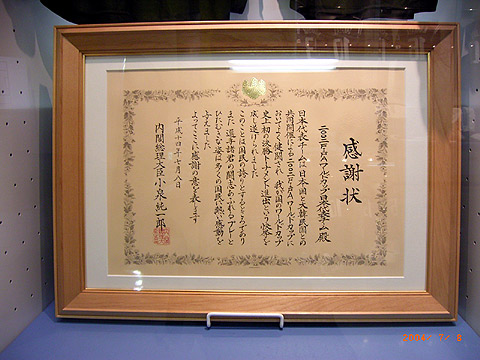 感謝状
二〇〇二FIFAワールドカップ日本代表チーム殿
日本代表チームは日本国と大韓民国との
共同開催による二〇〇二FIFAワールドカップに
おいてよく健闘され我が国のワールドカップ
史上初の決勝トーナメント進出という快挙を
成し遂げられました
このことは国民の誇りとするところであり
また選手諸君の闘志あふれるプレーと
ひたむきな姿は多くの国民に熱い感動を
与えました
よってここに感謝の意を表します
平成十四年七月八日
内閣総理大臣小泉純一郎